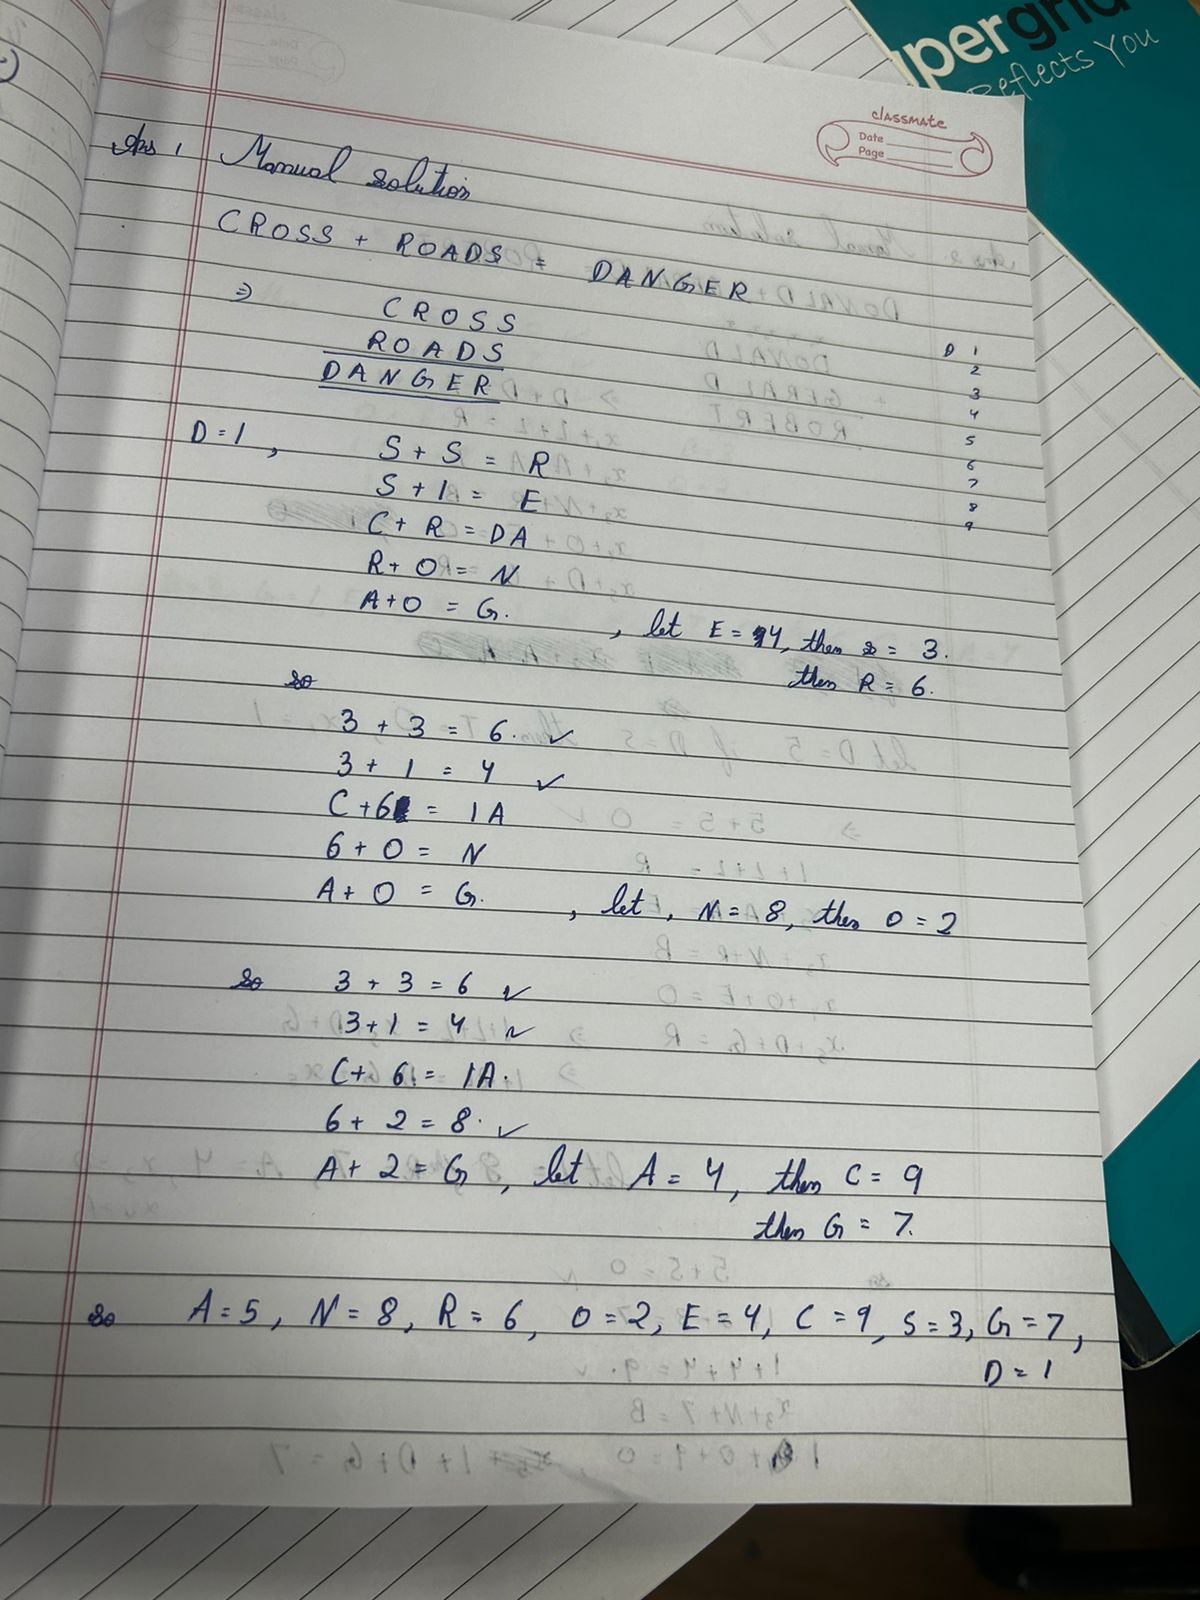 upergrid
Reflects You
classmate
Date
Page
Ans 1 Manual solution
CROSS + ROADS = DANGER
⇒ CROSS
ROADS
DANGER
D 1
2
3
4
5
6
7
8
9
D = 1, S + S = R
S + 1 = E
C + R = DA
R + O = N
A + O = G. , let E = 4, then s = 3.
then R = 6.
so
3 + 3 = 6. ✓
3 + 1 = 4 ✓
C + 6 = 1A
6 + O = N
A + O = G. , let, N = 8, then O = 2
so 3 + 3 = 6 ✓
3 + 1 = 4 ✓
C + 6 = 1A.
6 + 2 = 8. ✓
A + 2 = G, let A = 4, then C = 9
then G = 7.
so A = 5, N = 8, R = 6, O = 2, E = 4, C = 9, S = 3, G = 7,
D = 1